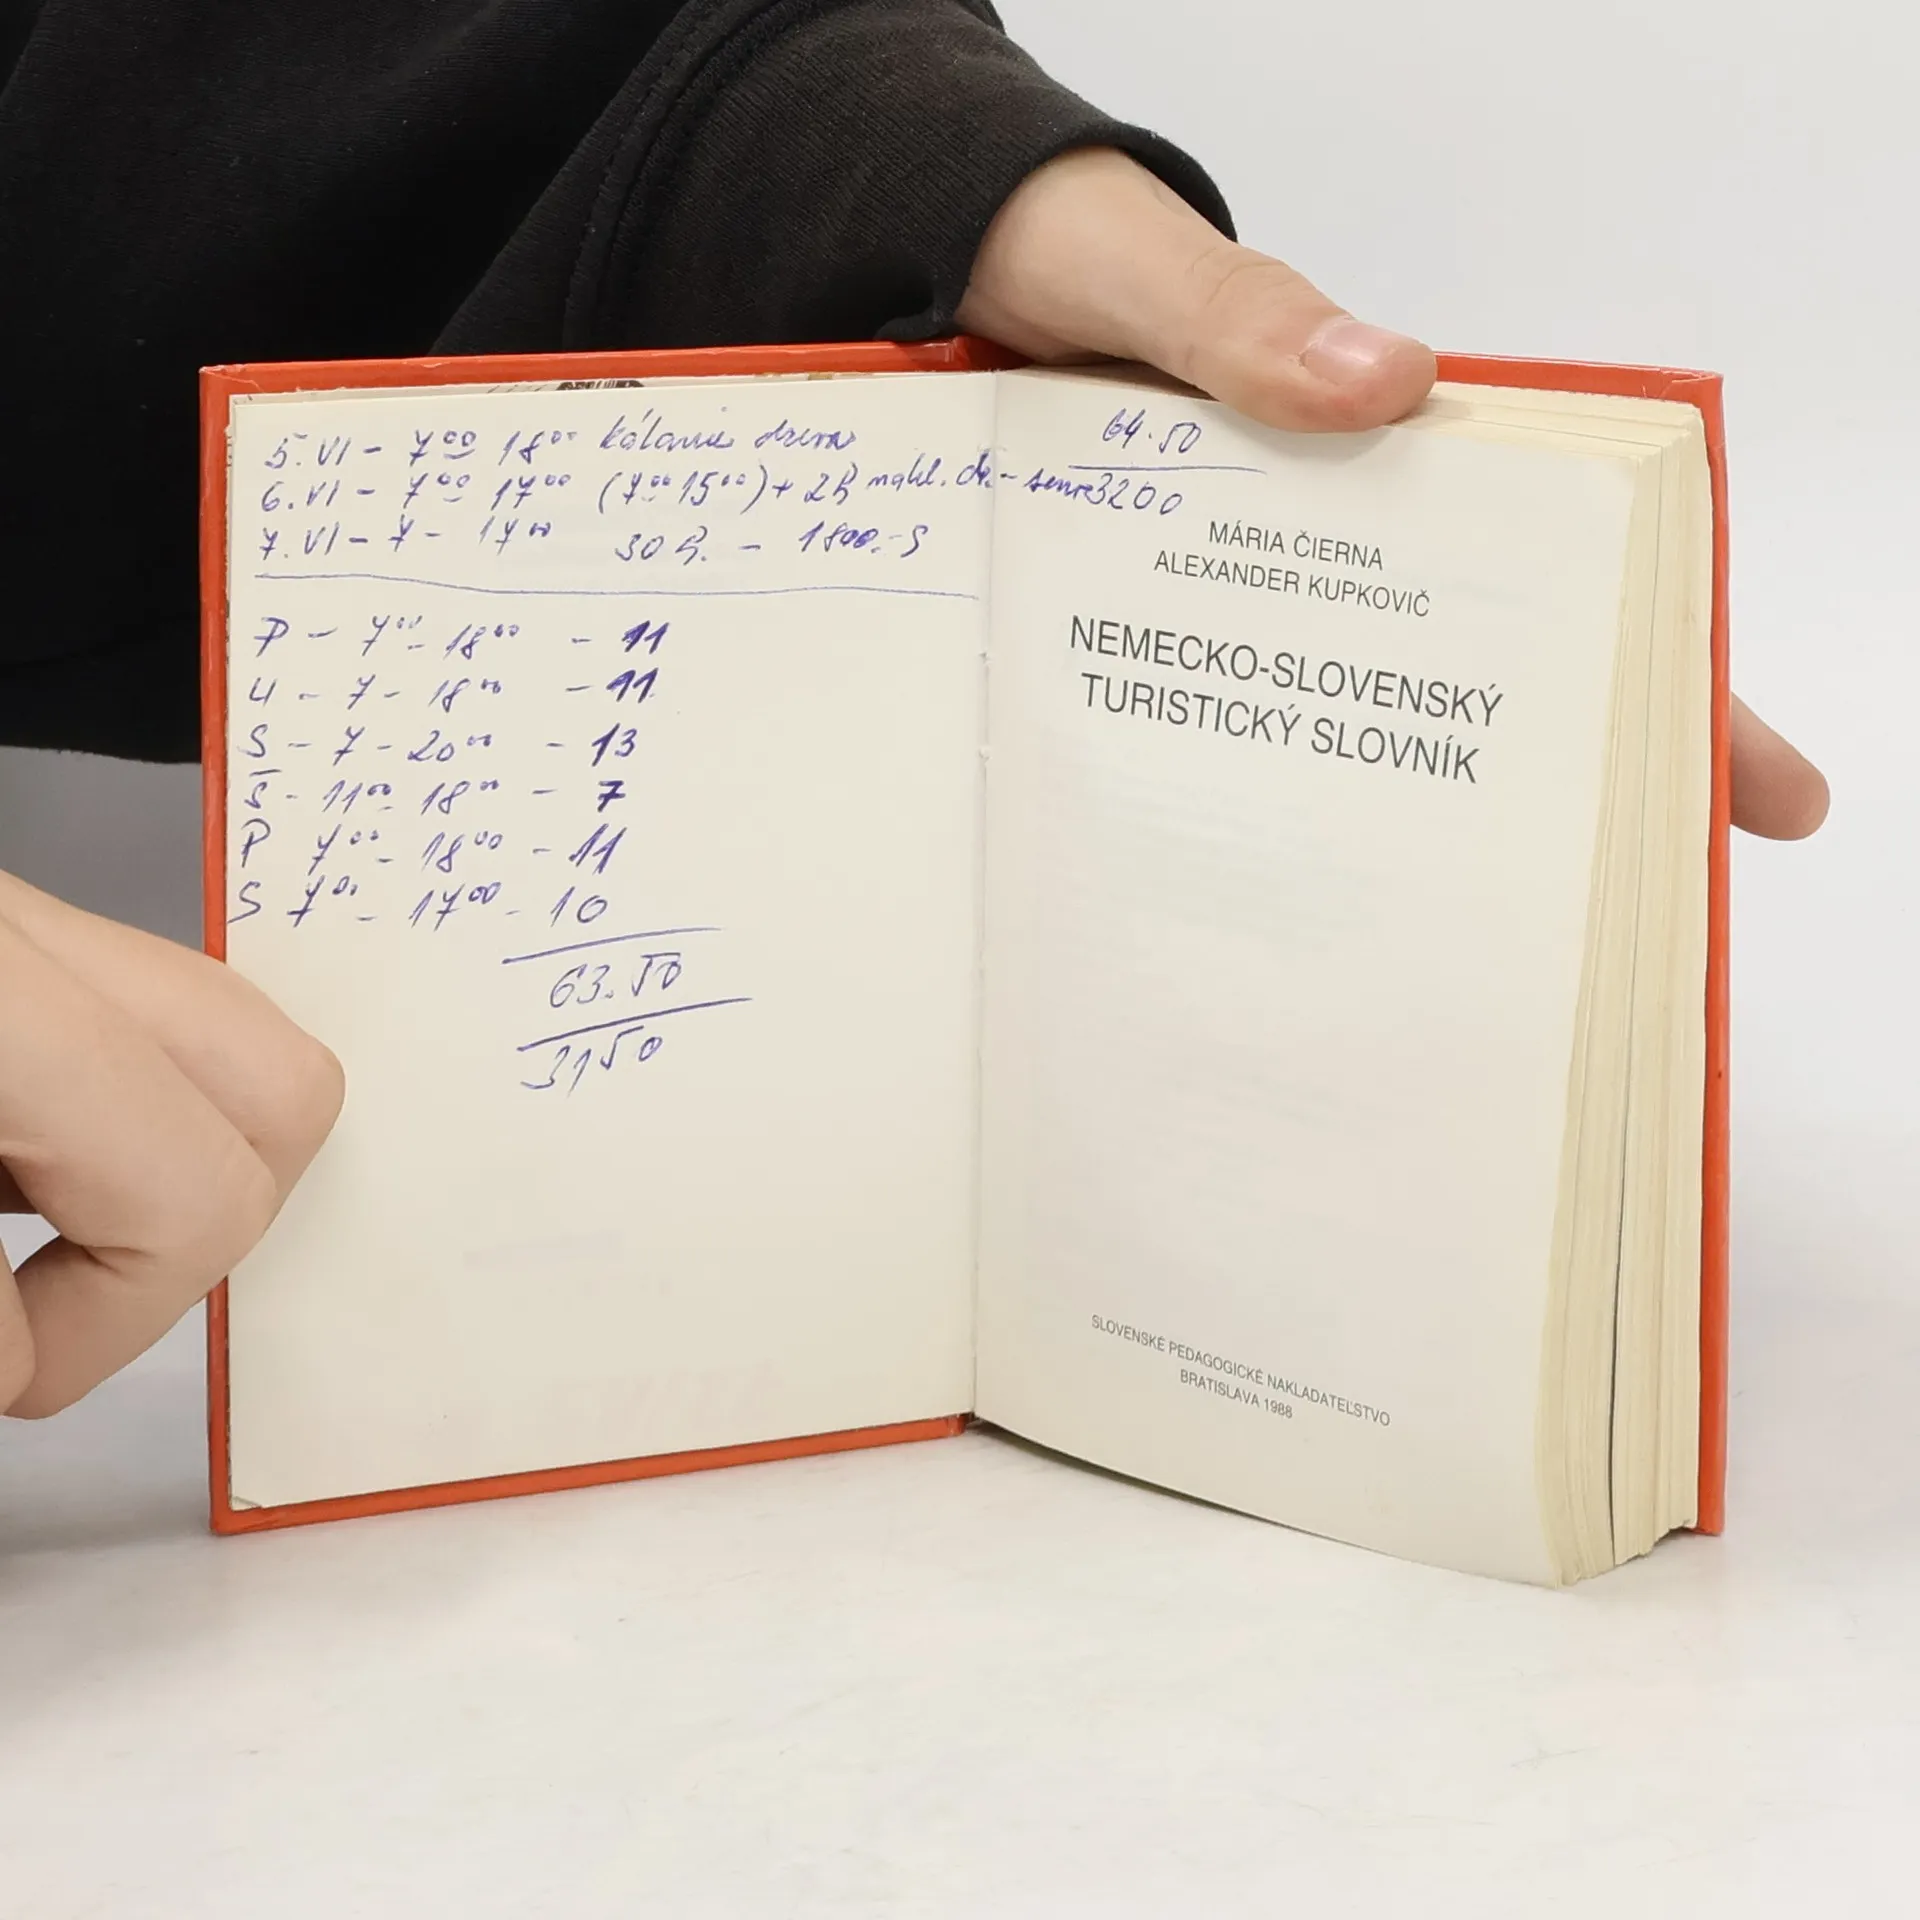 5. VI - 7⁰⁰ 18⁰⁰ kálanie dreva
6. VI - 7⁰⁰ 17⁰⁰ (7⁰⁰ 15⁰⁰) + 2h nakl. dr. -
7. VI - 7 - 17⁰⁰ 30 h. - 1800.- S
P - 7⁰⁰ - 18⁰⁰ - 11
U - 7 - 18⁰⁰ - 11
S - 7 - 20⁰⁰ - 13
Š - 11⁰⁰ - 18⁰⁰ - 7
P 7⁰⁰ - 18⁰⁰ - 11
S 7⁰⁰ - 17⁰⁰ - 10
63.50
3150
64.50
3200
MÁRIA ČIERNA
ALEXANDER KUPKOVIČ
NEMECKO-SLOVENSKÝ
TURISTICKÝ SLOVNÍK
SLOVENSKÉ PEDAGOGICKÉ NAKLADATEĽSTVO
BRATISLAVA 1988